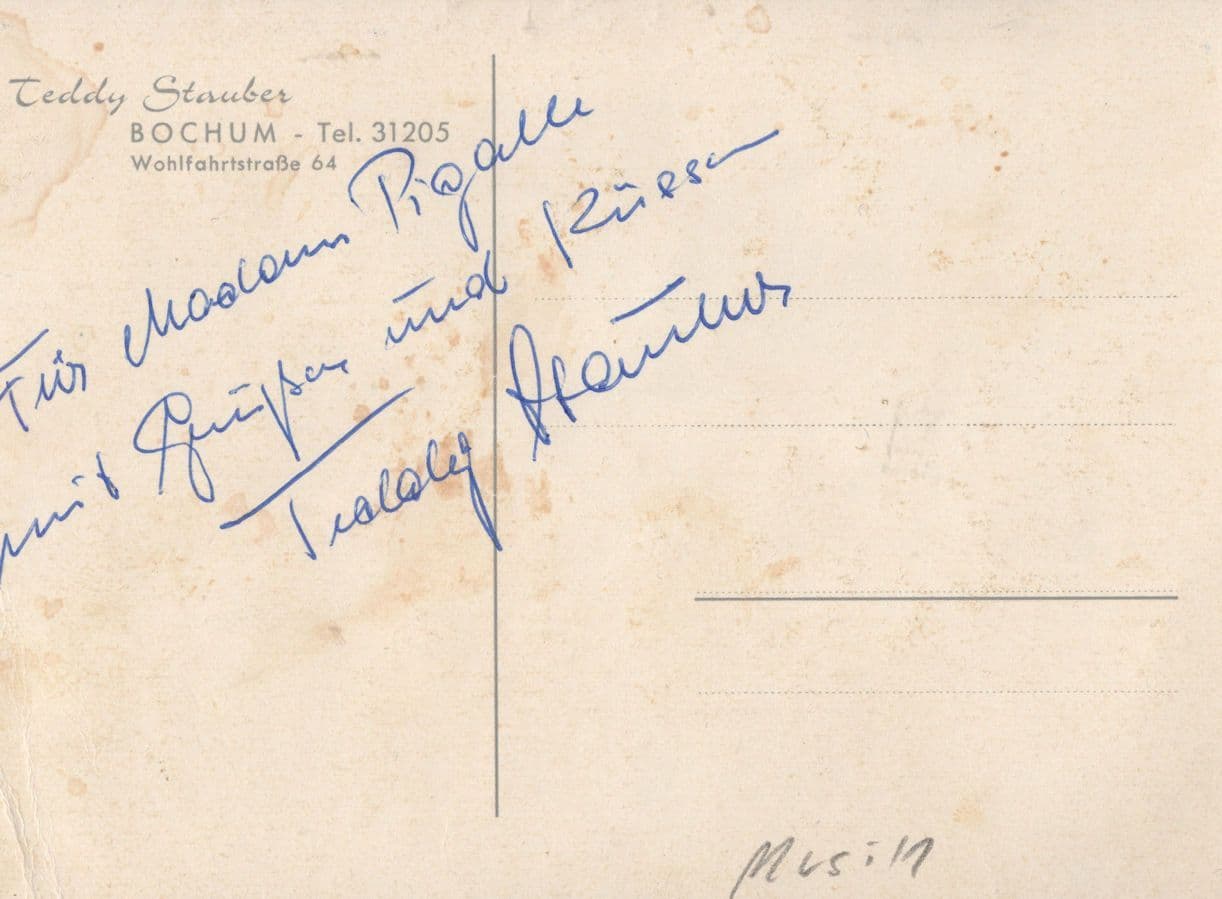 Teddy Stauber
BOCHUM - Tel. 31205
Wohlfahrtstraße 64
Für Madam Pigalle
mit Grüßen und Küssen
Teddy Stauber
Musik